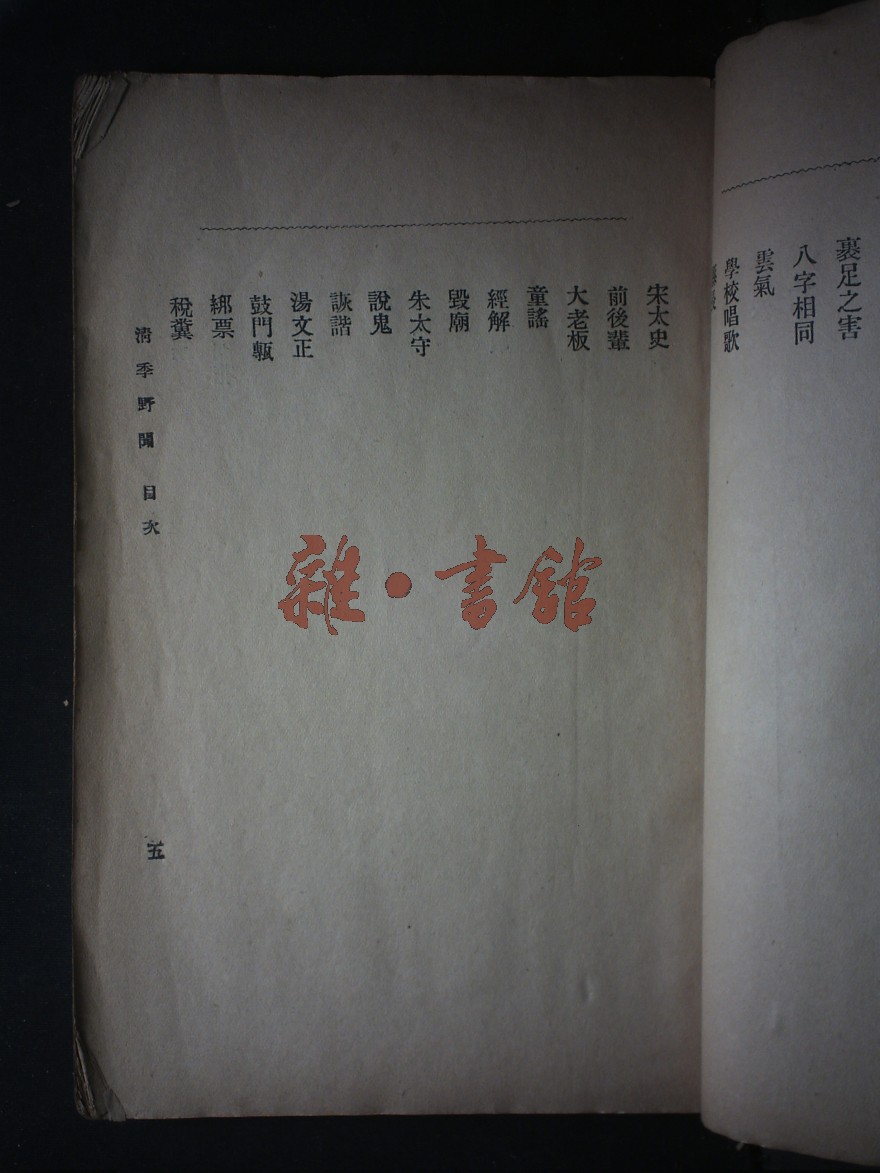 裹足之害
八字相同
雲氣
學校唱歌
宋太史
前後輩
大老板
童謠
經解
毀廟
朱太守
說鬼
詼諧
湯文正
鼓門甎
綁票
稅糞
清季野聞 目次
五
雜·書館